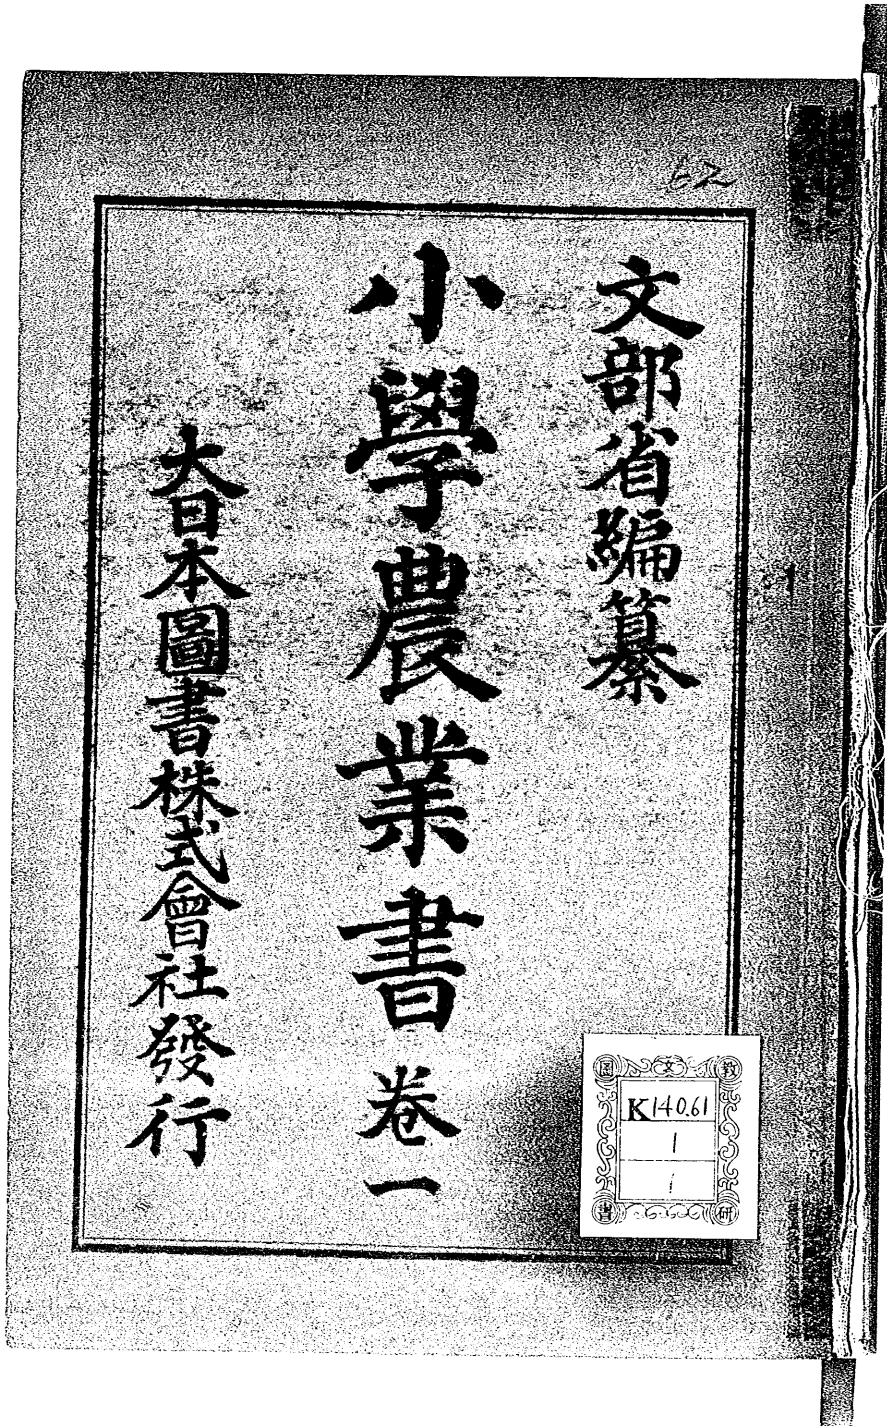 62
文部省編纂
小學農業書 卷一
大日本圖書株式會社發行
1
教文圖
K140.61
1
1
研書